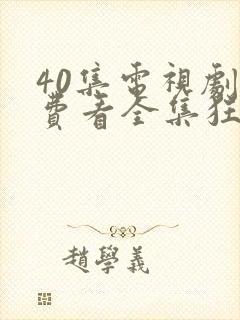 40集電視劇
費看全集狂
趙學義